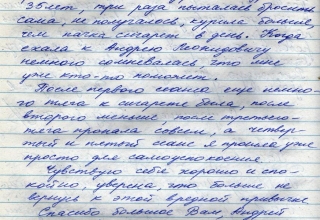 35 лет, три раза пыталась бросить
сама, не получалось, курила больше,
чем пачка сигарет в день. Когда
ехала к Андрею Леонидовичу
немного сомневалась, что мне
уже кто-то поможет.
После первого сеанса еще немно-
го тяга к сигарете была, после
второго меньше, после третьего -
тяга пропала совсем, а четвер-
тый и пятый сеанс я прошла уже
просто для самоуспокоения.
Чувствую себя хорошо и спо-
койно, уверена, что больше не
вернусь к этой вредной привычке.
Спасибо большое Вам, Андрей